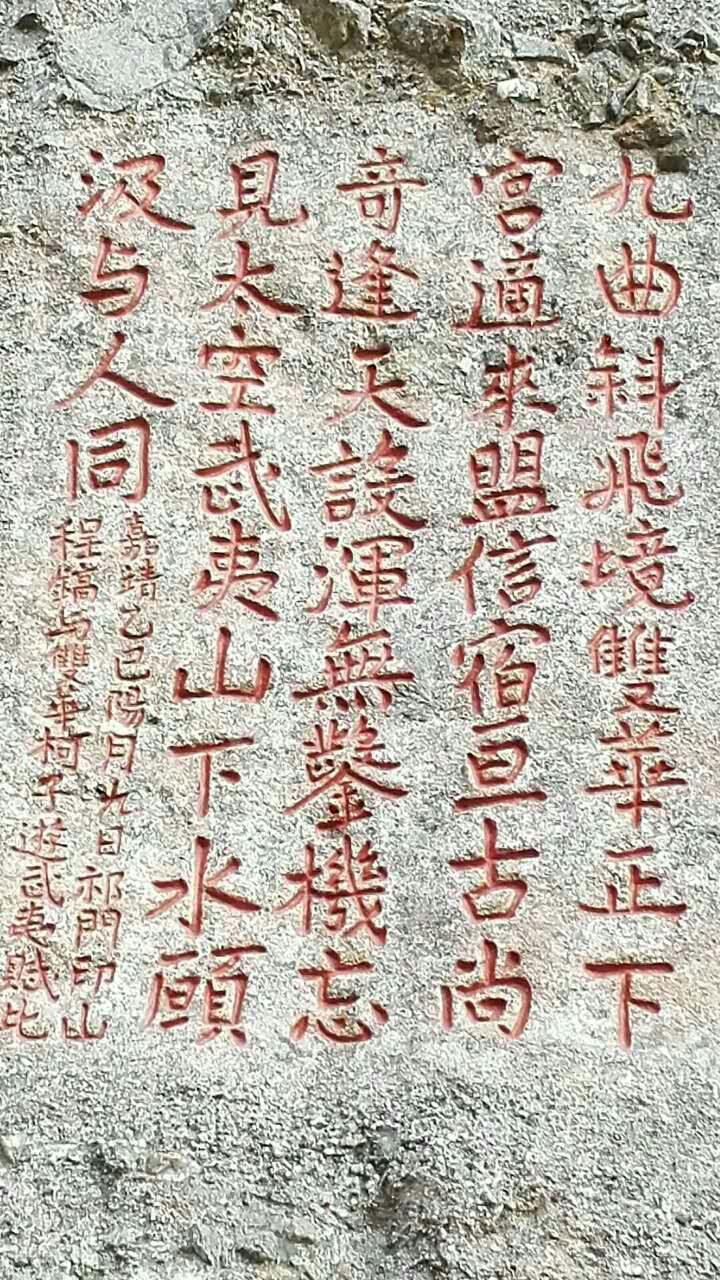 九曲斜飛境雙華正下
宮適來盟信宿亘古尚
奇逢天設渾無鑿機忘
見太空武夷山下水願
汲与人同
嘉靖乙巳陽月九日祁門印山
程鎬与雙華柯子遊武夷賦比